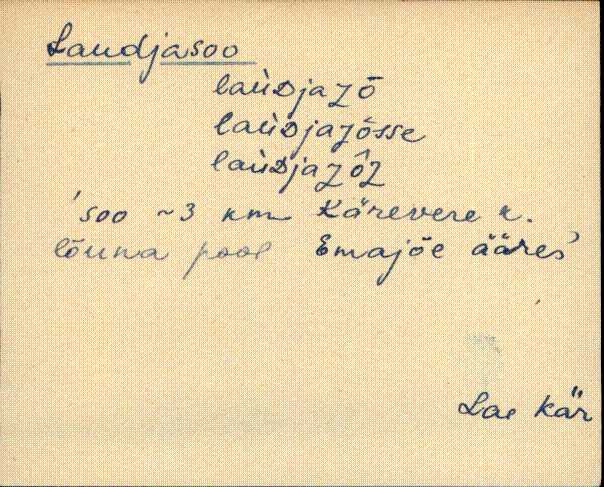 Laudjasoo
laùᴅjaʒō
laùᴅjaʒōsse
laùᴅjaʒô̄ʒ
'soo ~3 km Kärevere k.
lõuna pool Emajõe ääres'
Lai Kär